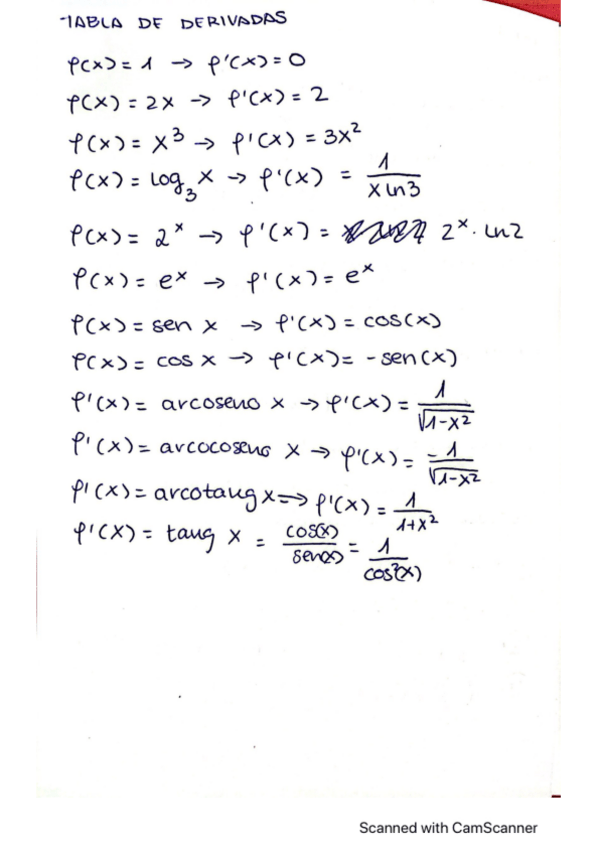 TABLA DE DERIVADAS
f(x) = 1 → f'(x) = 0
f(x) = 2x → f'(x) = 2
f(x) = x³ → f'(x) = 3x²
f(x) = log₃ x → f'(x) = 1/(x ln3)
f(x) = 2ˣ → f'(x) = 2ˣ · ln2
f(x) = eˣ → f'(x) = eˣ
f(x) = sen x → f'(x) = cos(x)
f(x) = cos x → f'(x) = -sen(x)
f'(x) = arcoseno x → f'(x) = 1/√(1-x²)
f'(x) = arcocoseno x → f'(x) = -1/√(1-x²)
f'(x) = arcotang x => f'(x) = 1/(1+x²)
f'(x) = tang x = cos(x)/sen(x) = 1/cos²(x)
Scanned with CamScanner